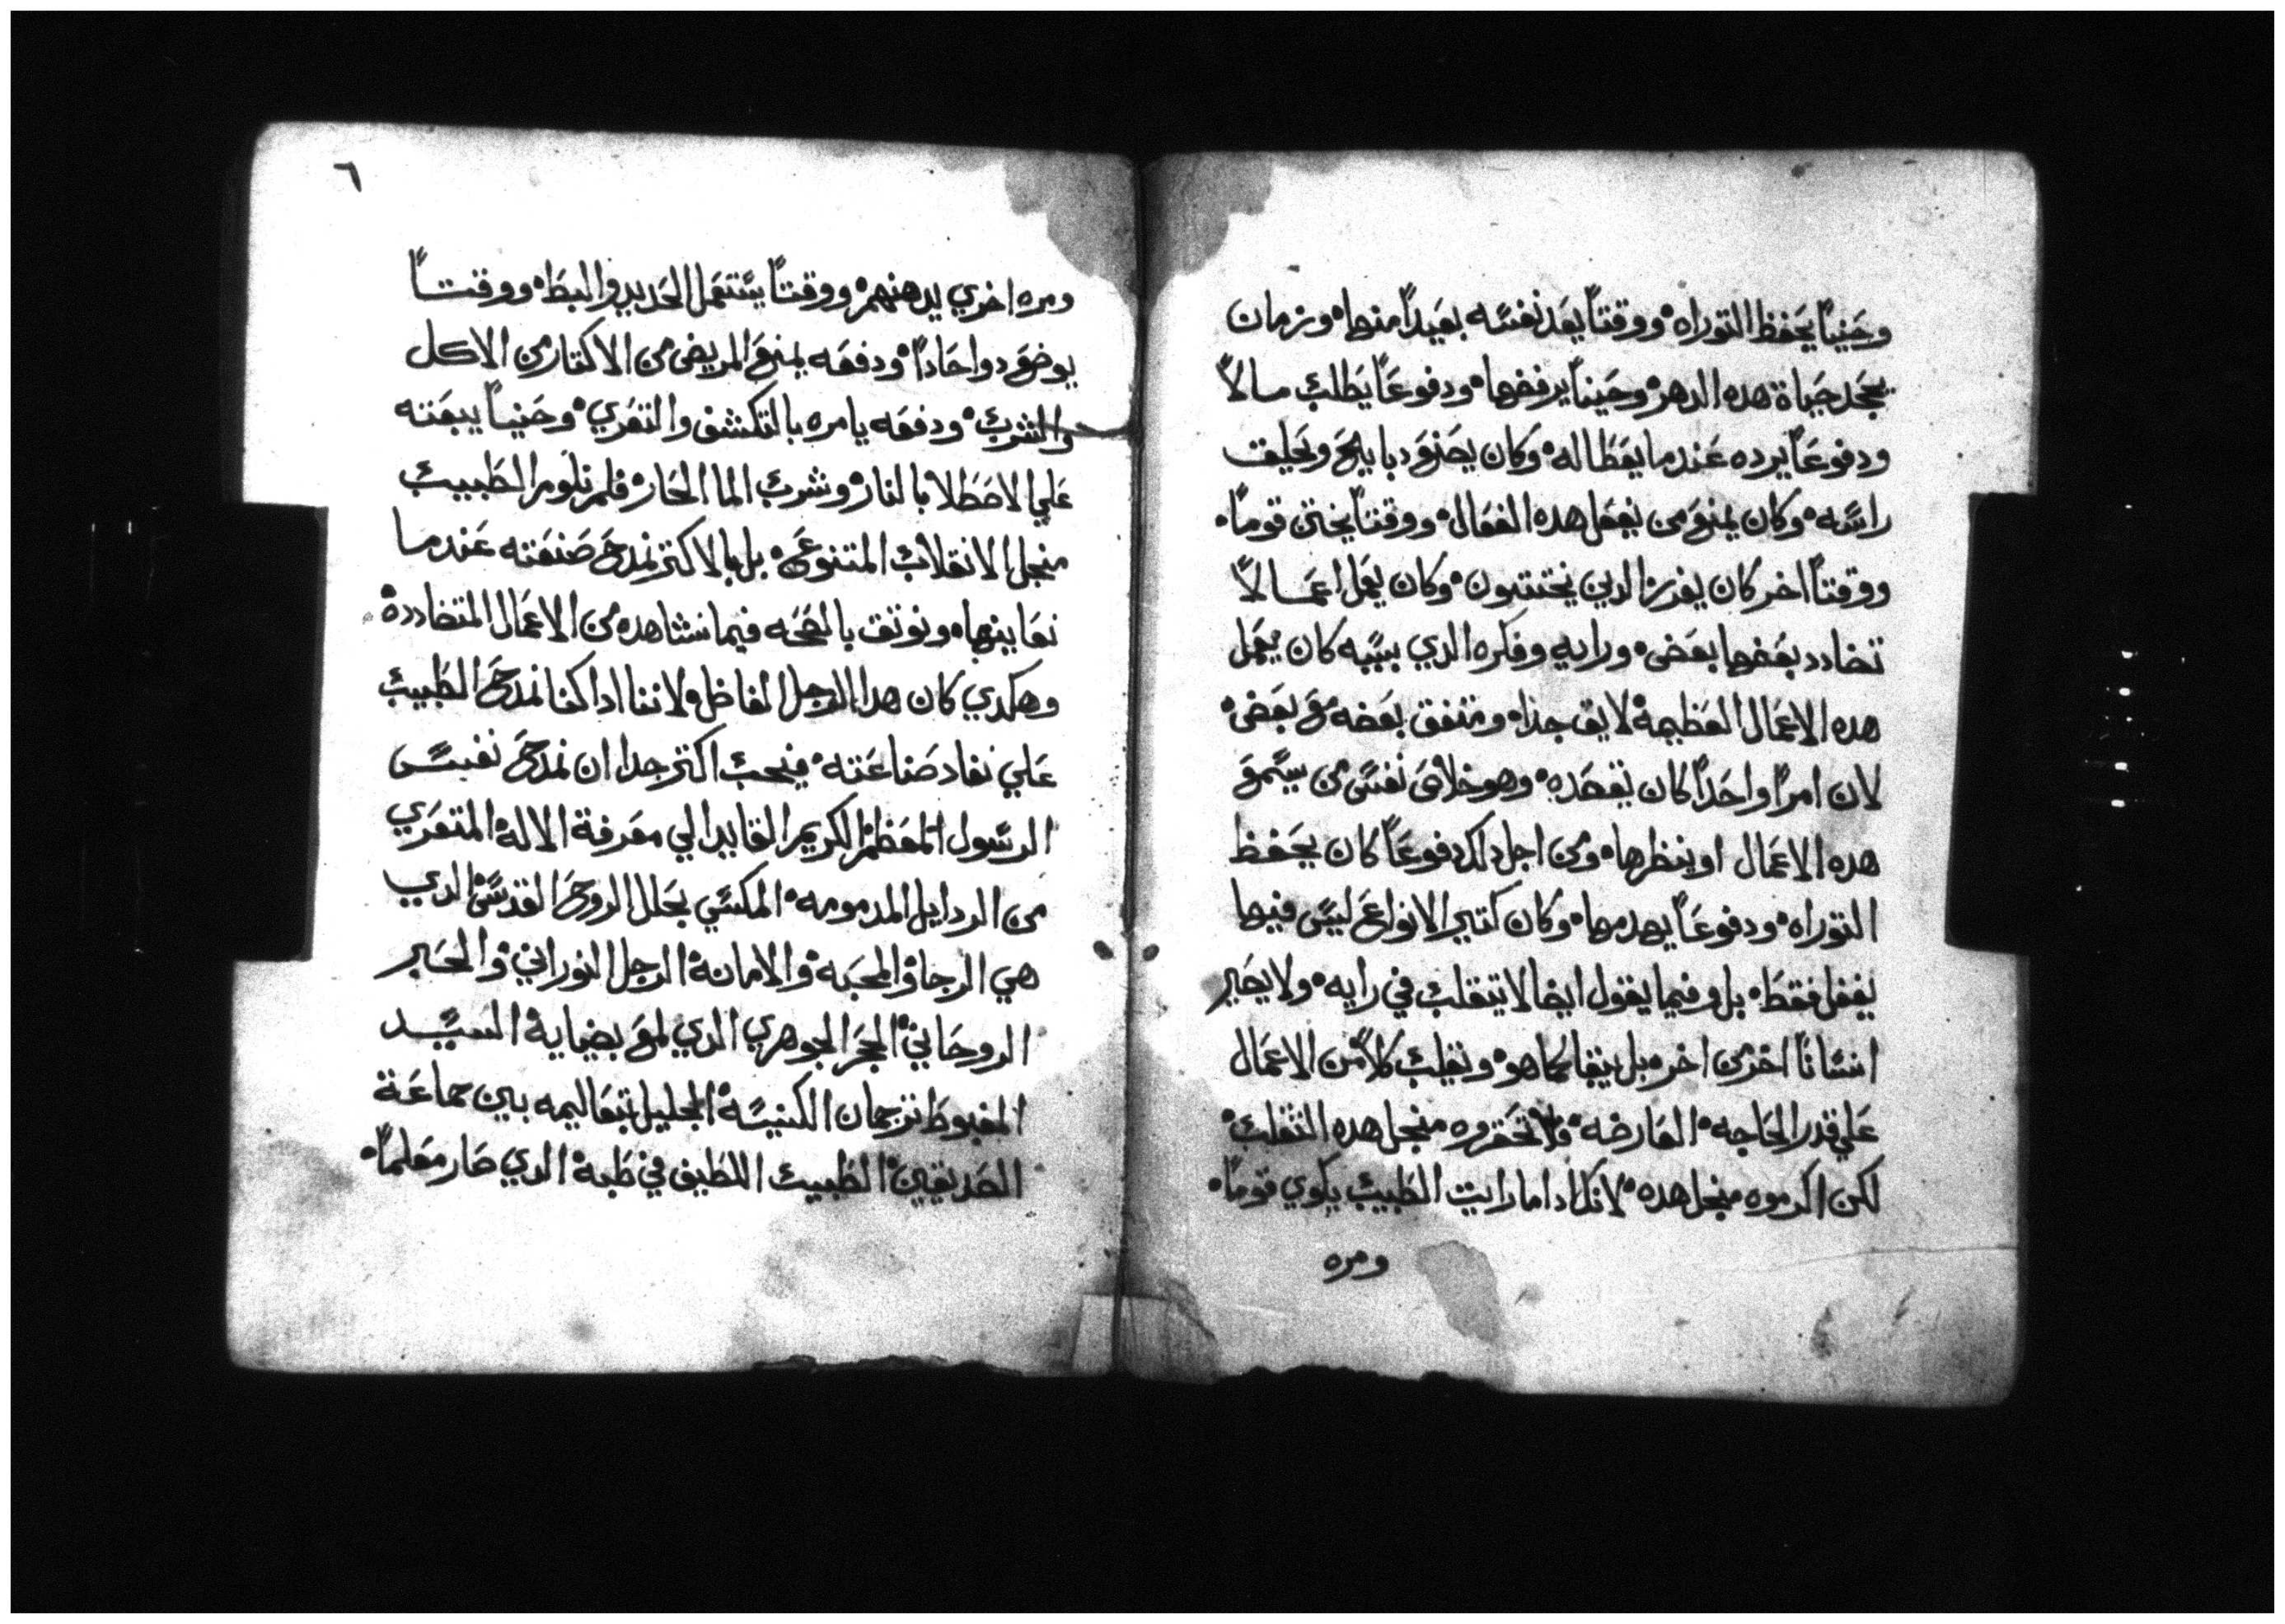 وحيناً يحفظ التوراه ووقتاً يعد نفسه بعيداً منها وزمان
يجحد حياة هده الدهر وحيناً يرفضها ودفوعاً يطلب مالاً
ودفوعاً يرده عندما يعطا له وكان يصنع دبايح وتحليق
راسه وكان يمنع من يفعل هده الفعال ووقتاً يختن قوماً
ووقتاً اخر كان يفرز الدين يختتنون وكان يعمل اعمالاً
تضادد بعضها بعض ورايه وفكره الدي بسببه كان يعمل
هده الاعمال العظيمة لايق جدا ومتفق بعضه مع بعض
لان امراً واحداً كان يقصده وهو خلاص نفس من يسمع
هده الاعمال او ينظرها ومن اجل دلك دفوعاً كان يحفظ
التوراه ودفوعاً يهدمها وكان كتير الانواع ليس فيها
يفعل فقط بل وفيما يقول ايضا لا يتقلب في رايه ولا يصير
انساناً اخر من اخر بل يبقا كما هو ويقلب كلاً من الاعمال
علي قدر الحاجه العارضه فلا تحقروه منجل هده التقلب
لكن اكرموه منجل هده لانك ادا ما رايت الطبيب يكوي قوماً
ومره
٦
ومره اخري يدهنهم ووقتاً يستعمل الحديد والبط ووقتاً
يوضع دوا حاداً ودفعه يمنع المريض من الاكتار من الاكل
والشرب ودفعه يامره بالتكشف والتعري وحيناً يبعته
علي الاصطلا بالنار وشرب الما الحار فلم نلوم الطبيب
منجل الانقلاب المتنوع بل بالاكتر نمدح صنعته عندما
نعاينها ونوتق بالصحه فيما نشاهده من الاعمال المتضادده
وهكدي كان هدا الرجل الفاضل ولاننا اداكنا نمدح الطبيب
علي نفاد صناعته فيحب اكتر جدا ان نمدح نفس
الرسول المعظم الكريم القايد الي معرفة الاله المتعري
من الردايل المدمومه المكسي بحلل الروح القدس الدي
هي الرجا والمحبه والامانة الرجل النوراني والحبر
الروحاني الحجر الجوهري الدي لمع بضياية السيد
المغبوط ترجمان الكنيسة الجليل بتعاليمه بين جماعة
الصديقين الطبيب اللطيف في طبة الدي صار معلماً